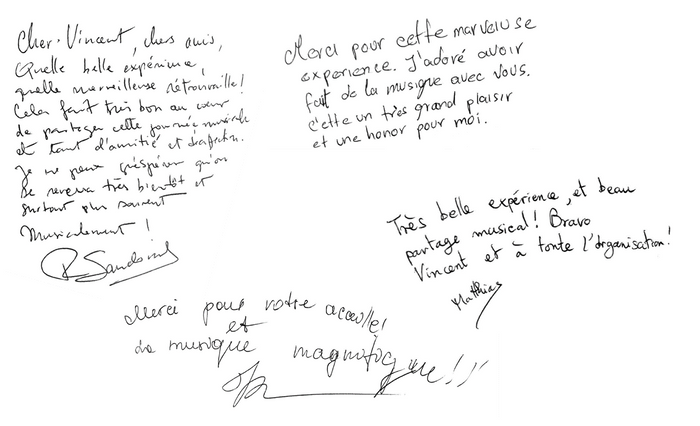 Cher Vincent, chers amis,
Quelle belle expérience,
quelle merveilleuse retrouvaille!
Cela fait très bon au cœur
de partager cette journée musicale
et tant d'amitié et d'affection.
Je ne peux qu'espérer qu'on
se reverra très bientôt et
surtout plus souvent
Musicalement !
Merci pour cette marveluse
experience. J'adoré avoir
fait de la musique avec vous.
C'ette un très grand plaisir
et une honor pour moi.
Très belle expérience, et beau
partage musical! Bravo
Vincent et à toute l'organisation!
Matthias
Merci pour votre
et
la musique magnifique!!